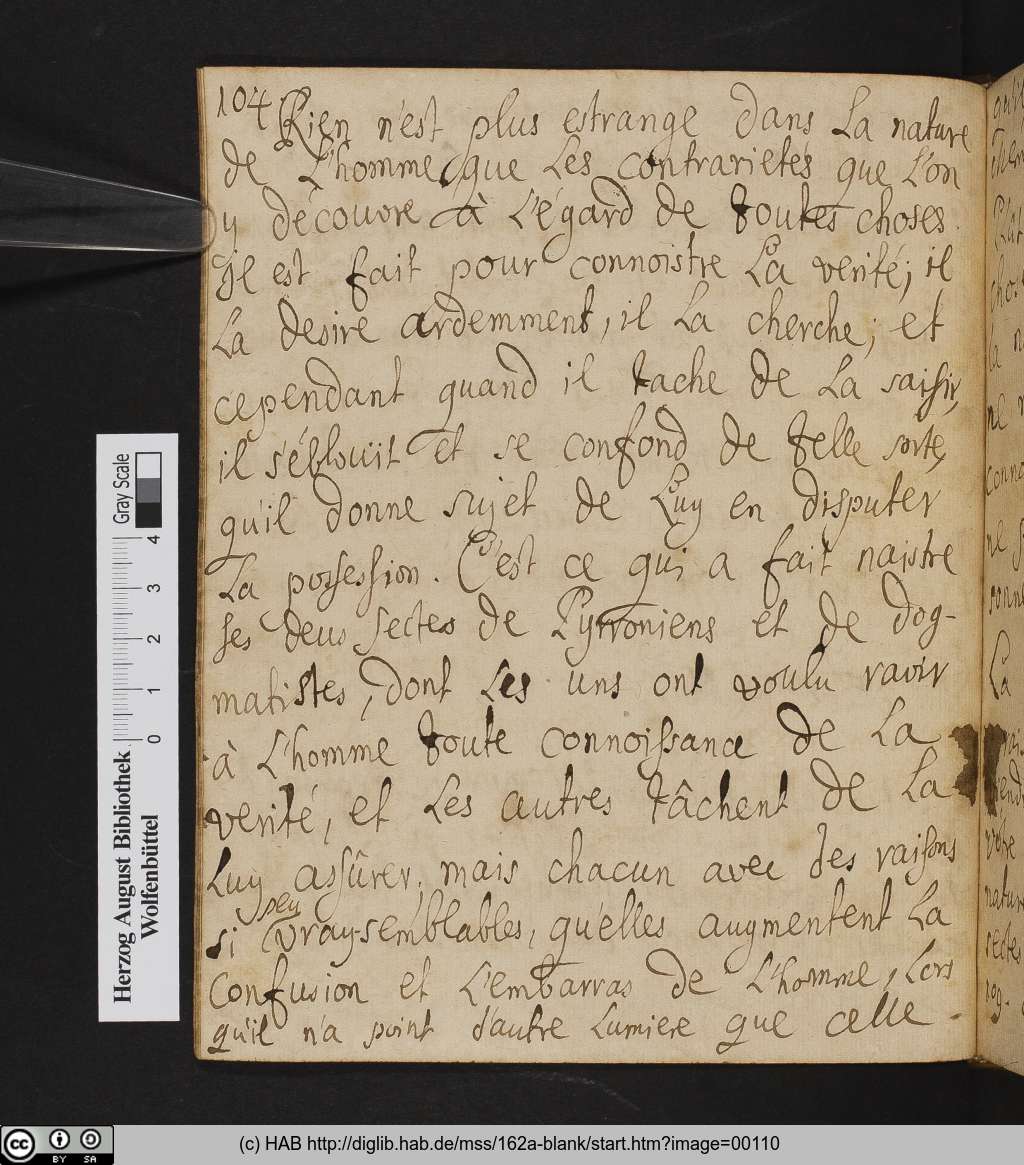 104
Rien n'est plus estrange dans La nature
de L'homme, que Les contrarietés que L'on
y découvre à L'égard de toutes choses.
jl est fait pour connoistre La verité; il
La desire ardemment, il La cherche; et
cependant quand il tache de La saisir,
il s'éblouït et se confond de telle sorte,
qu'il donne sujet de Luy en disputer
La possession. C'est ce qui a fait naistre
ses deus sectes de Pyrroniens et de dog-
matistes, dont Les uns ont voulu ravir
à L'homme toute connoissance de La
verité, et Les autres tâchent de La
Luy assûrer, mais chacun avec des raisons
si peu vray-semblables, qu'elles augmentent La
confusion et L'embarras de L'homme, Lors
qu'il n'a point d'autre Lumiere que celle
Herzog August Bibliothek
Wolfenbüttel
0 1 2 3 4
Gray Scale
cc BY SA
(c) HAB http://diglib.hab.de/mss/162a-blank/start.htm?image=00110